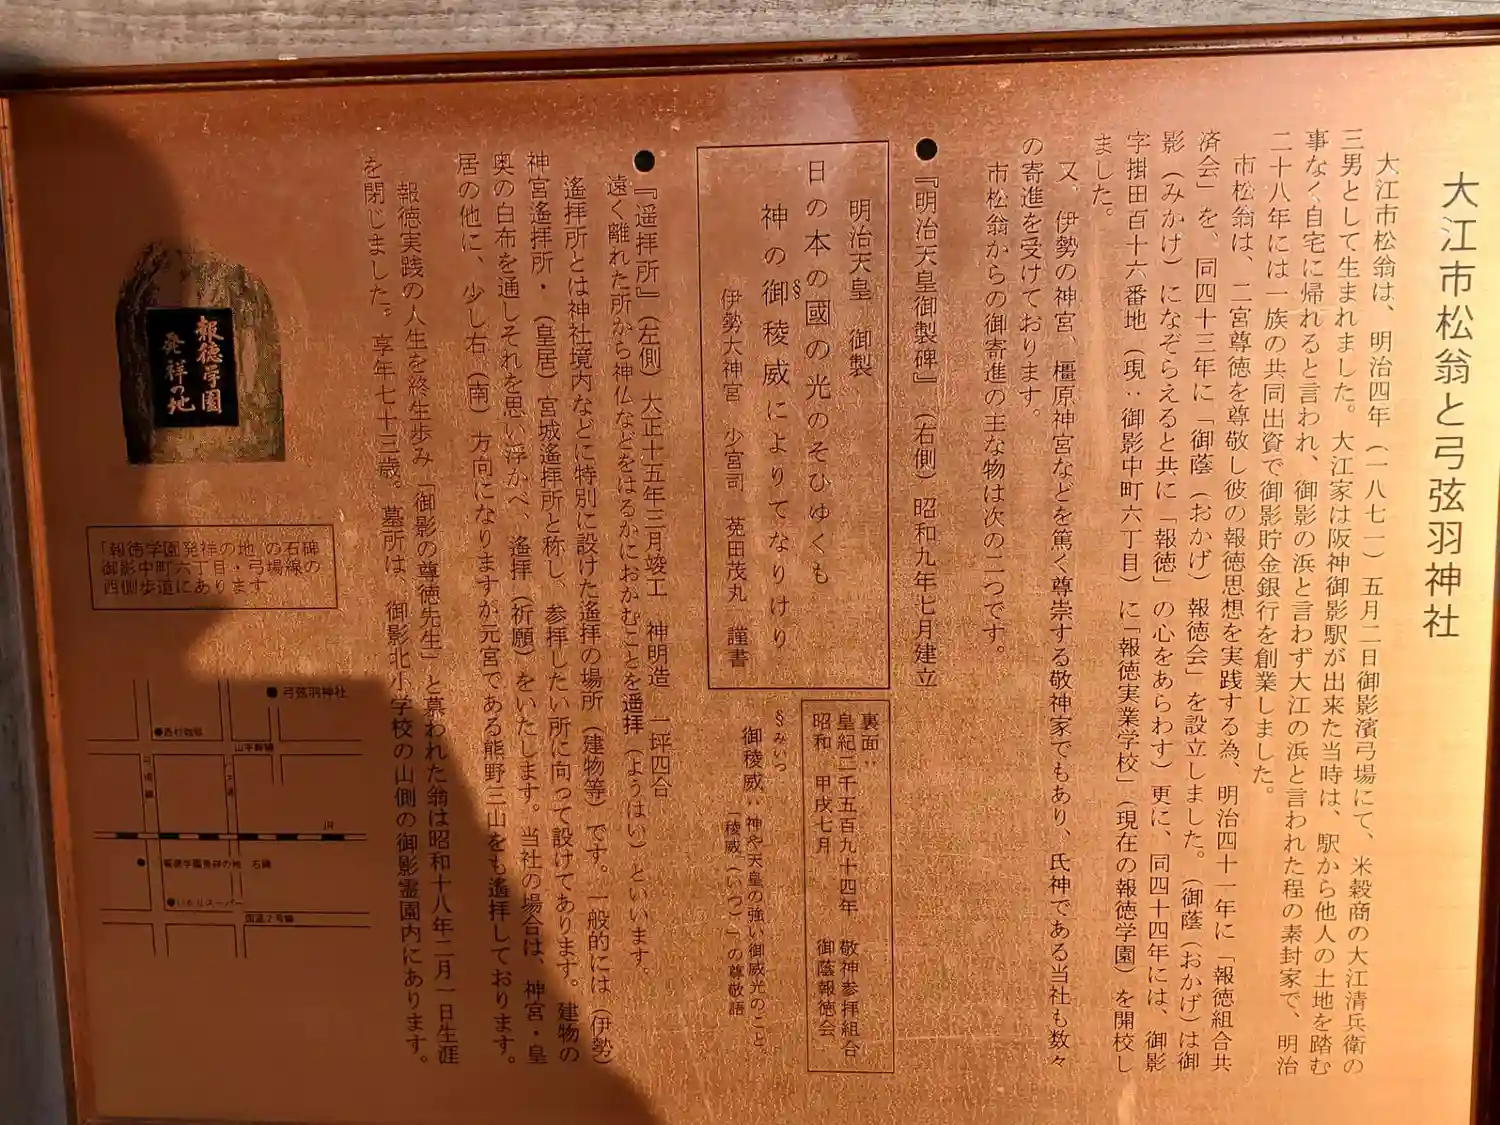 大江市松翁と弓弦羽神社
大江市松翁は、明治四年（一八七一）五月二日御影濱弓場にて、米穀商の大江清兵衛の
三男として生まれました。大江家は阪神御影駅が出来た当時は、駅から他人の土地を踏む
事なく自宅に帰れると言われ、御影の浜と言わず大江の浜と言われた程の素封家で、明治
二十八年には一族の共同出資で御影貯金銀行を創業しました。
市松翁は、二宮尊徳を尊敬し彼の報徳思想を実践する為、明治四十一年に「報徳組合共
済会」を、同四十三年に「御蔭（おかげ）報徳会」を設立しました。（御蔭（おかげ）は御
影（みかげ）になぞらえると共に「報徳」の心をあらわす）更に、同四十四年には、御影
字掛田百十六番地（現：御影中町六丁目）に「報徳実業学校」（現在の報徳学園）を開校し
ました。
又、伊勢の神宮、橿原神宮などを篤く尊崇する敬神家でもあり、氏神である当社も数々
の寄進を受けております。
市松翁からの御寄進の主な物は次の二つです。
●『明治天皇御製碑』（右側）昭和九年七月建立
明治天皇　御製
日の本の國の光のそひゆくも
神の御稜威によりてなりけり
§
伊勢大神宮　少宮司　𦱳田茂丸　謹書
裏面：
皇紀二千五百九十四年　敬神参拝組合
昭和　甲戌七月　御蔭報徳会
§みいつ
御稜威：神や天皇の強い御威光のこと、
「稜威（いつ）」の尊敬語
●『遥拝所』（左側）大正十五年三月竣工　神明造　一坪四合
遠く離れた所から神仏などをはるかにおかむことを遥拝（ようはい）といいます。
遙拝所とは神社境内などに特別に設けた遙拝の場所（建物等）です。一般的には（伊勢）
神宮遙拝所・（皇居）宮城遙拝所と称し、参拝したい所に向って設けてあります。建物の
奥の白布を通しそれを思い浮かべ、遙拝（祈願）をいたします。当社の場合は、神宮・皇
居の他に、少し右（南）方向になりますが元宮である熊野三山をも遙拝しております。
報徳実践の人生を終生歩み「御影の尊徳先生」と慕われた翁は昭和十八年二月一日生涯
を閉じました。享年七十三歳。墓所は、御影北小学校の山側の御影霊園内にあります。
報徳学園
発祥の地
「報徳学園発祥の地」の石碑
御影中町六丁目・弓場線の
西側歩道にあります
●弓弦羽神社
山手幹線
弓場線
JR
●報徳学園発祥の地　石碑
●いかりスーパー
国道2号線